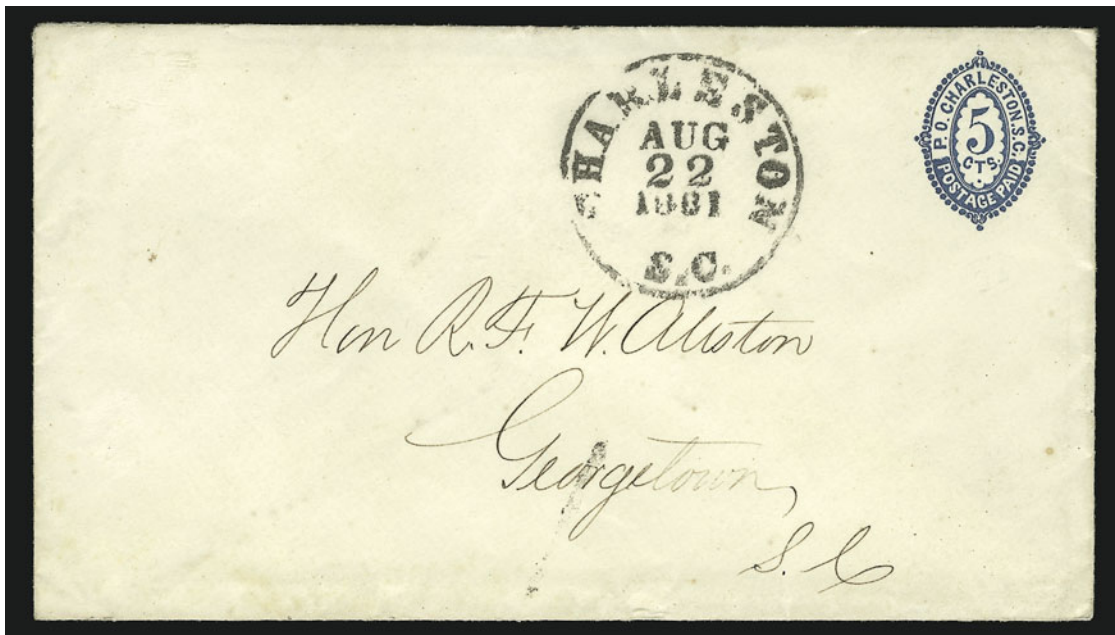 CHARLESTON
AUG
22
1861
S.C.
P.O. CHARLESTON. S.C.
5
CTS.
POSTAGE PAID
Hon R. F. W. Allston
Georgetown,
S. C